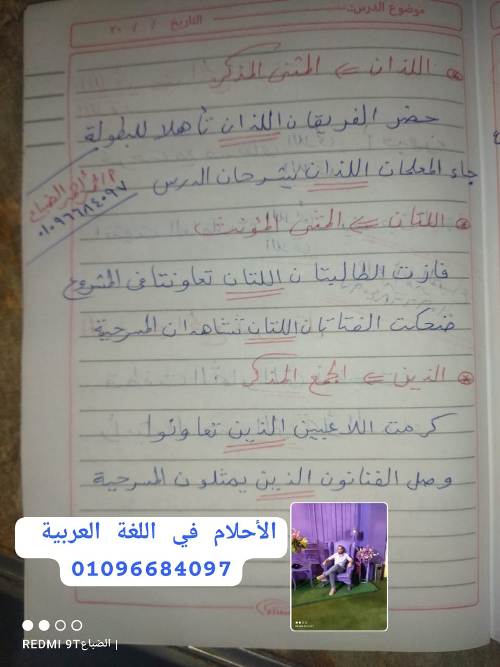 موضوع الدرس:
التاريخ / / ٢٠
اللذان ⇐ المثنى المذكر
حضر الفريقان اللذان تأهلا للبطولة
جاء المعلمان اللذان يشرحان الدرس
٠١٠٩٦٦٨٤٠٩٧
اللتان ⇐ المثنى المؤنث
فازت الطالبتان اللتان تعاونتا في المشروع
ضحكت الفتاتان اللتان تشاهدان المسرحية
الذين ⇐ الجمع المذكر
كرمت اللاعبين الذين تعاونوا
وصل الفنانون الذين يمثلون المسرحية
الأحلام في اللغة العربية
01096684097
REDMI 9T الضباع |